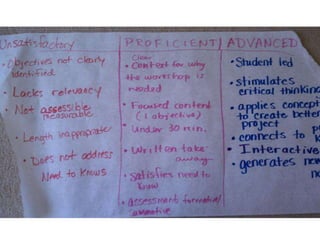 Unsatisfactory
• Objectives not clearly
identified
• Lacks relevancy
• Not assessible
measurable
• Length inappropriate
• Does not address
Need to knows
PROFICIENT
Clear
• Context for why
the workshop is
needed
• Focused content
(1 objective)
• Under 30 min.
• Written take
away
• satisfies need to
know
• assessment formative/
ADVANCED
• Student led
• stimulates
critical thinking
• applies concept
to create better
project
• connects to
• Interactive
• generates new